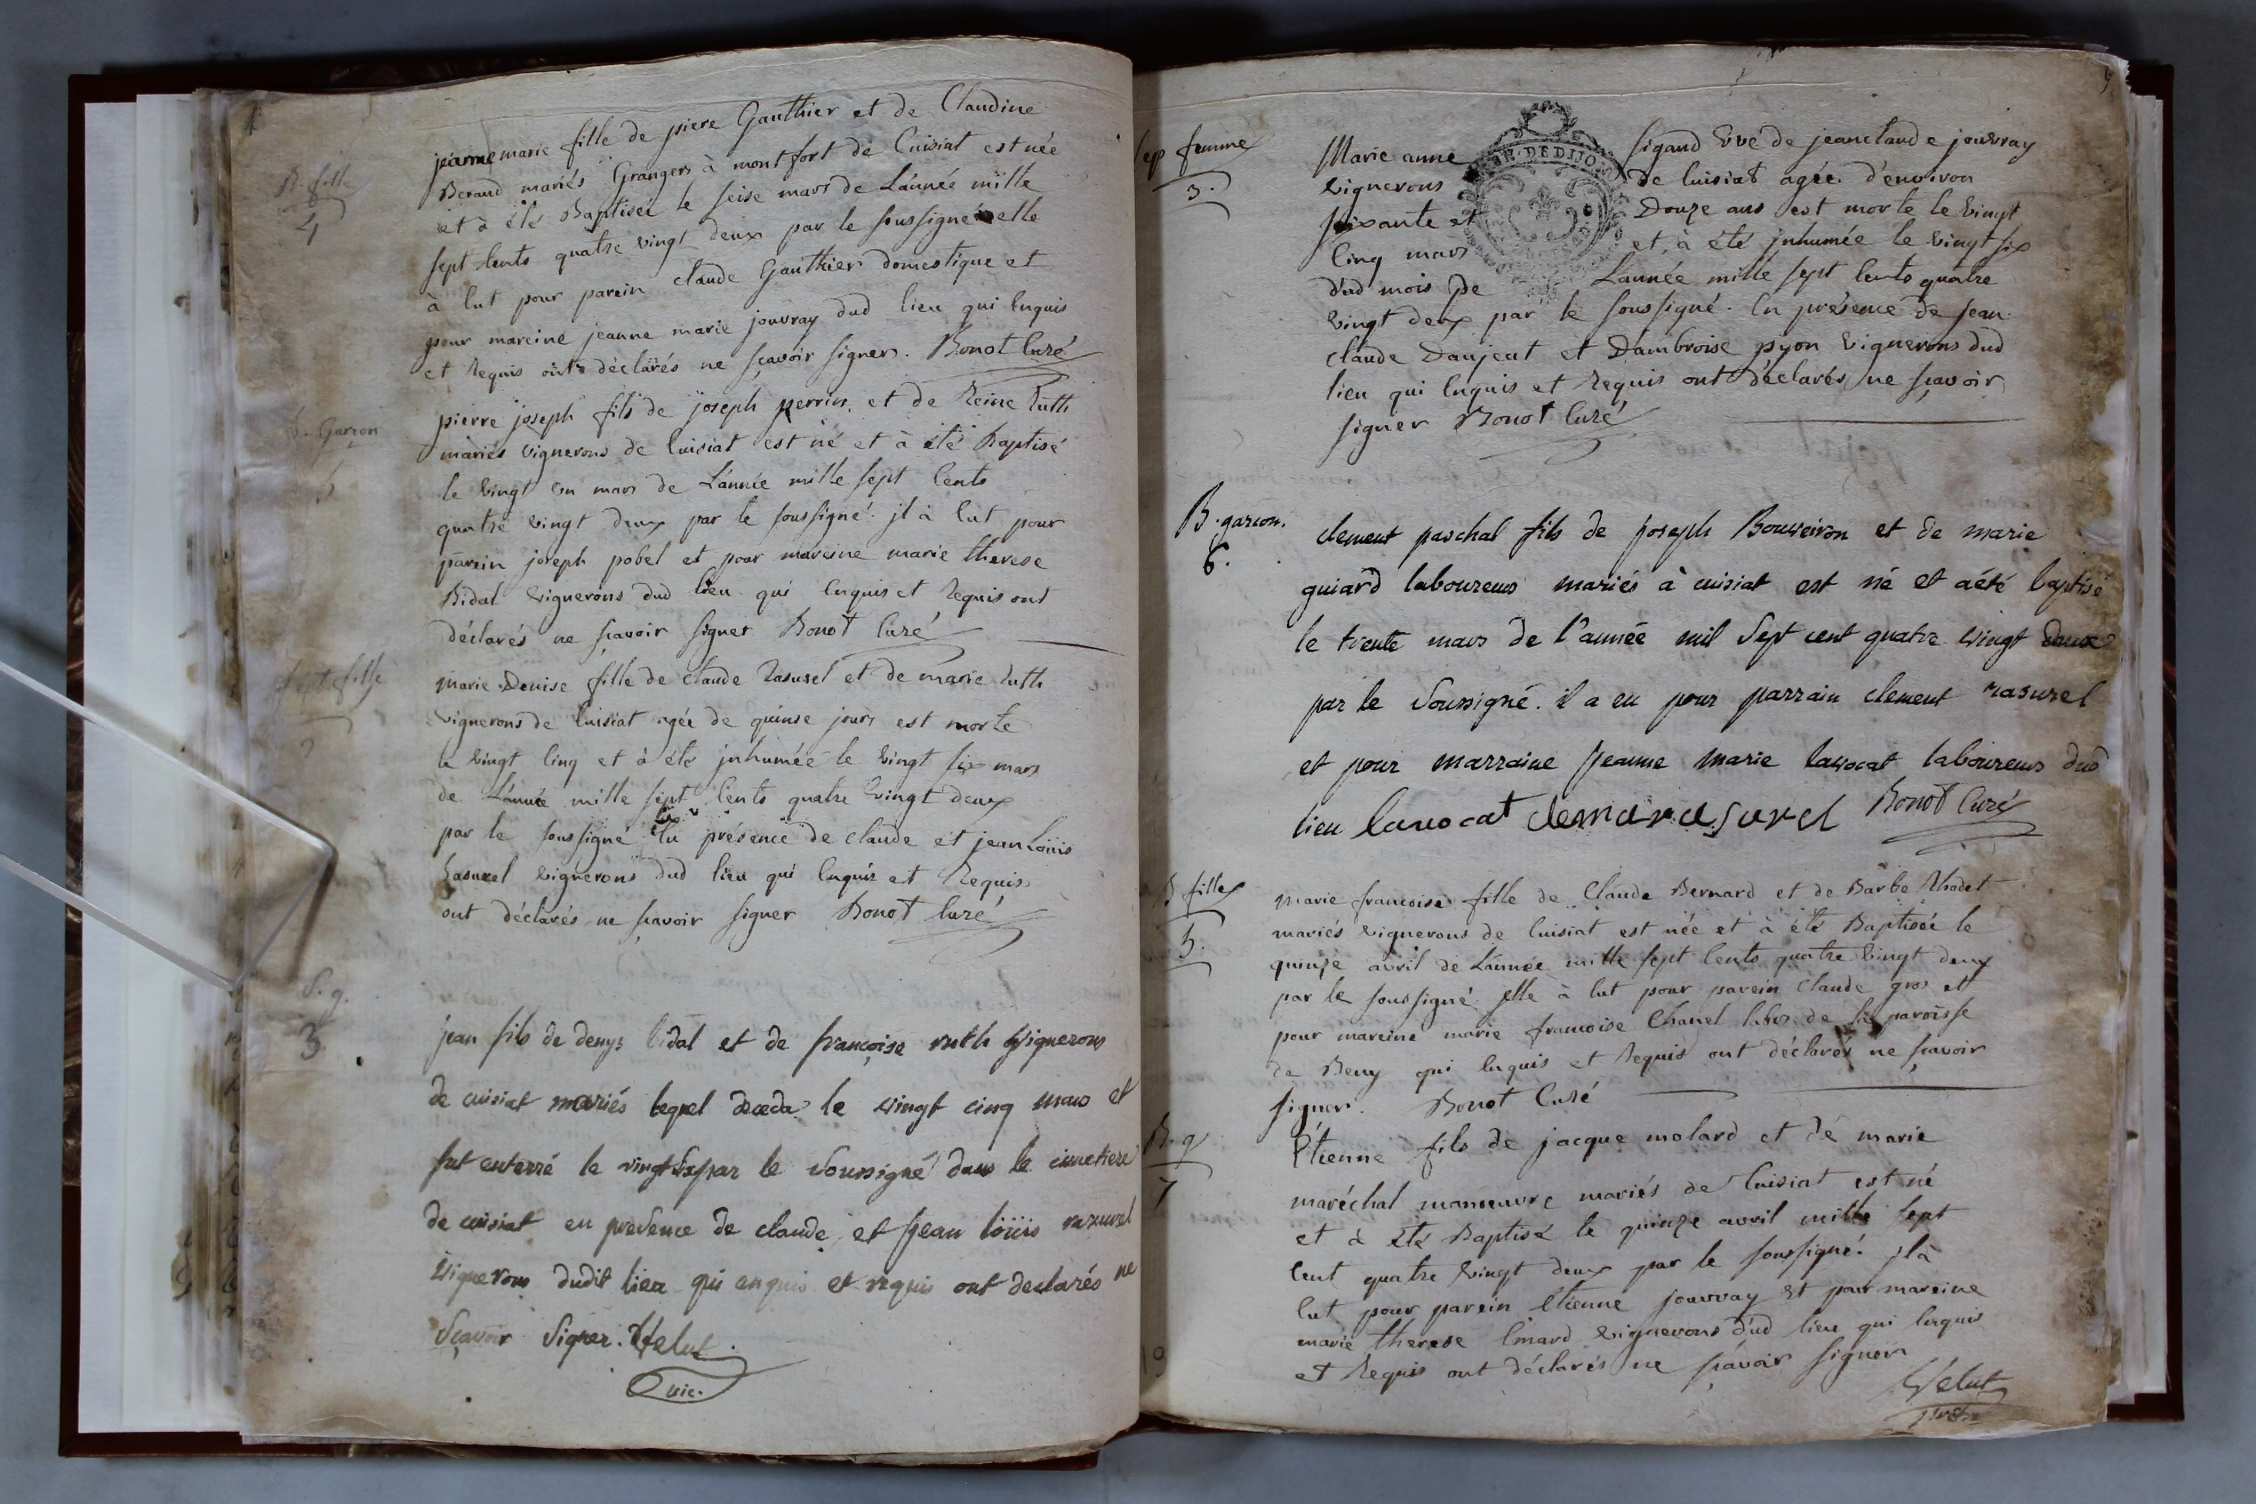 B. fille
4
jeanne marie fille de piere Gauthier et de Claudine
Beraud mariés Grangers à montfort de Cuisiat est née
et à été Baptisée le seise mars de Lánnée mille
sept Cents quatre vingt deux par le soussigné elle
à Eut pour parein claude Gauthier domestique et
pour mareine jeanne marie jouvray dud lieu qui Enquis
et Requis ont déclarés ne sçavoir signer. Bonot Curé
B. Garçon
5
pierre joseph fils de joseph perrin et de Reine Ruth
mariés vignerons de Cuisiat est né et à été Baptisé
le vingt un mars de Lánnée mille sept Cents
quatre vingt deux par le soussigné. jl à Eut pour
parein joseph pobel et pour mareine marie therese
Bidal vignerons dud lieu qui Enquis et Requis ont
déclarés ne sçavoir signer Bonot Curé
sept. fille
2
marie Denise fille de claude Rasurel et de marie Ruth
vignerons de Cuisiat agée de quinse jours est morte
le vingt Cinq et à été jnhumée le vingt six mars
de Lánnée mille sept Cents quatre vingt deux
par le soussigné En présence de claude et jean Loüis
Rasurel vignerons dud lieu qui Enquis et Requis
ont déclarés ne sçavoir signer Bonot Curé
S. g.
3
jean fils de denys bidal et de françoise ruth vignerons
de cuisiat mariés lequel déceda le vingt cinq mars et
fut enterré le vingt six par le soussigné dans le cimetiere
de cuisiat en presence de claude et jean loüis razurel
vignerons dudit lieu qui enquis et requis ont declarés ne
sçavoir signer. Velut
vic.
Sep femme
3.
Marie anne Sigaud vve de jean claude jouvray
vignerons de Cuisiat agée d'environ
soixante et Douze ans est morte le vingt
Cinq mars et à été jnhumée le vingt six
dud mois De Lannée mille sept Cents quatre
vingt deux par le soussigné. En présence de jean
claude Daujeat et D'ambroise pyon vignerons dud
lieu qui Enquis et Requis ont déclarés ne sçavoir
signer Bonot Curé
B. garcon.
6.
clement paschal fils de joseph Bouveiron et de marie
guiard laboureurs mariés à cuisiat est né et a été baptisé
le trente mars de l'année mil sept cent quatre vingt deux
par le soussigné. il a eu pour parrain clement rasurel
et pour marraine jeanne marie lavocat laboureurs dud
lieu lavocat clemarasurel Bonot Curé
B fille
5.
marie francoise fille de Claude Bernard et de Barbe Rhodet
mariés vignerons de Cuisiat est née et à été Baptisée le
quinze avril de Lánnée mille sept Cents quatre vingt deux
par le soussigné elle à Eut pour parein Claude gros et
pour mareine marie francoise Chanel labrs de la paroisse
de Beny qui Enquis et Requis ont déclarés ne sçavoir
signer. Bonot Curé
B. g
7
Étienne fils de jacque molard et dé marie
maréchal manœuvre mariés de Cuisiat est né
et à été Baptisé le quinze avril mille sept
Cent quatre vingt deux par le soussigné. jl à
Eut pour parein Etienne jouvray et pour mareine
marie therese Emard vignerons dud lieu qui Enquis
et Requis ont déclarés ne sçavoir signer
Velut